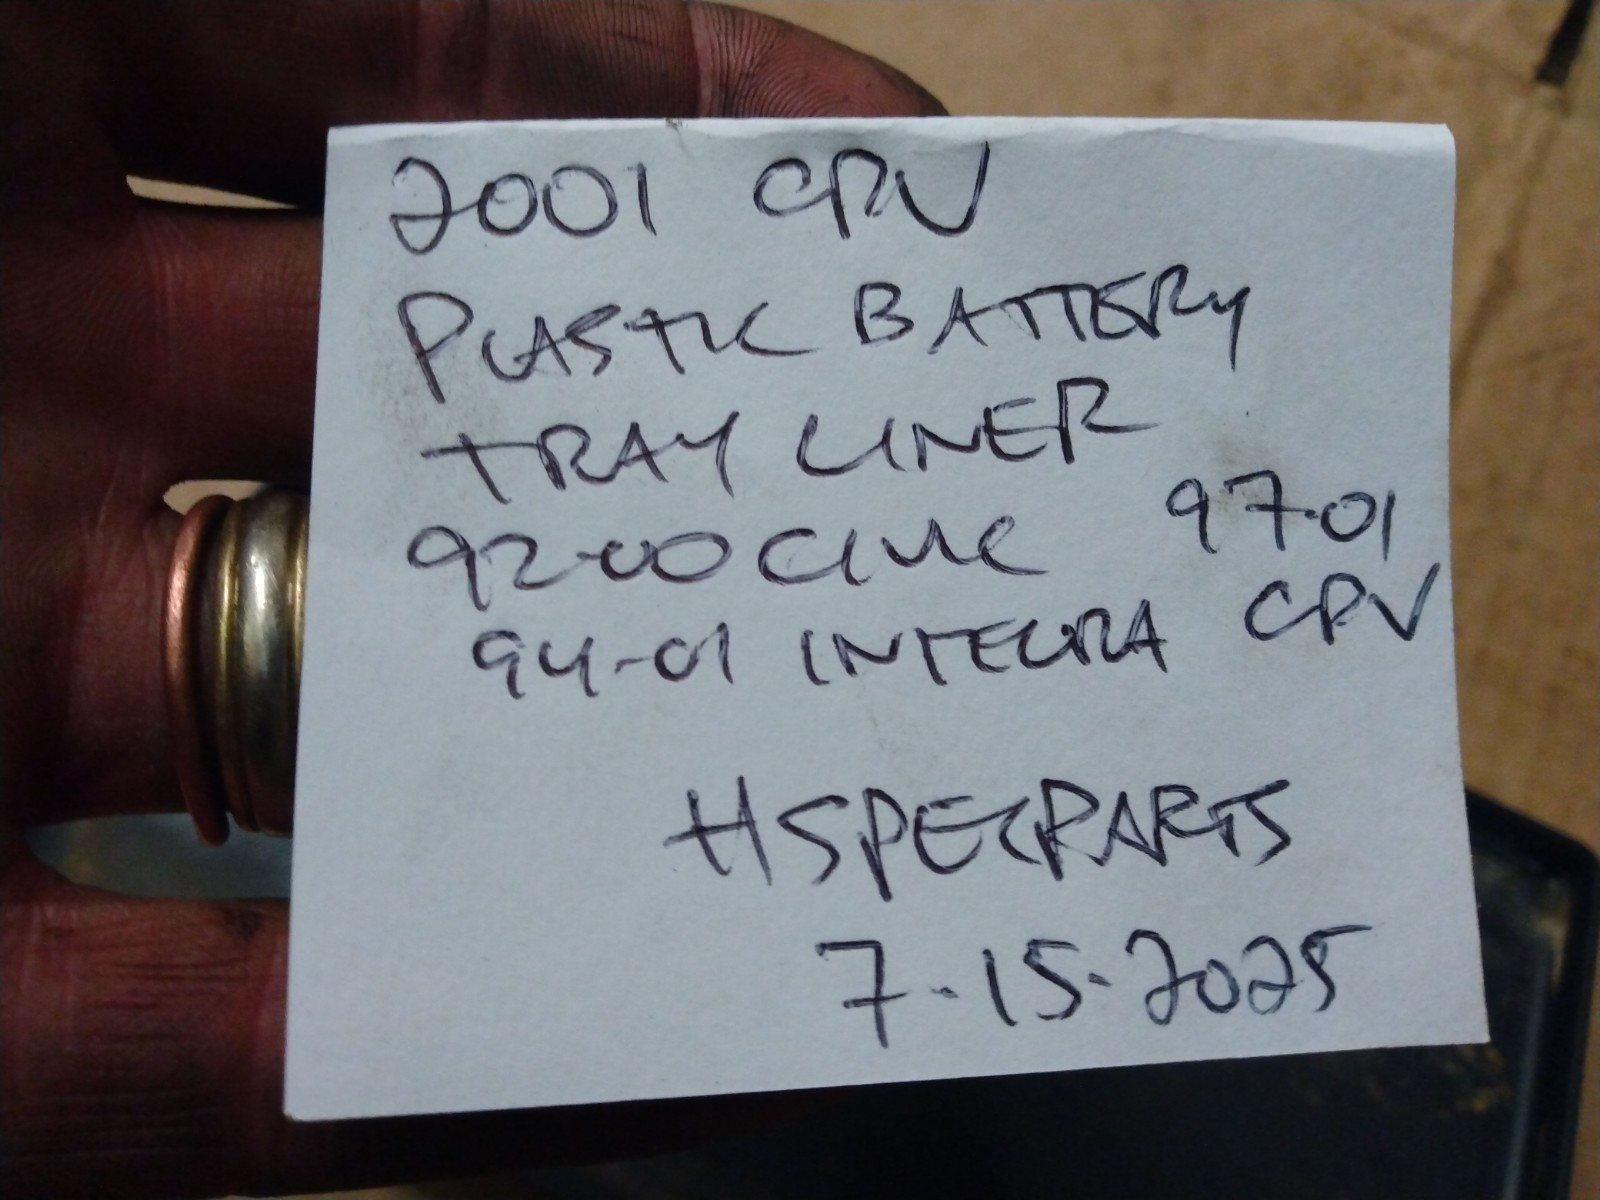 2001 CRV
PLASTIC BATTERY
TRAY LINER
92-00 CIVIC 97-01
94-01 INTEGRA CRV
HSPECPARTS
7-15-2025